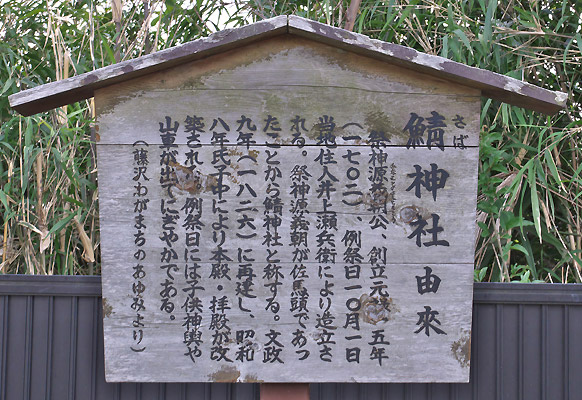 さば
鯖神社由來
祭神源義朝公、創立元禄一五年
(一七〇二)、例祭日一〇月一日
当地住人井上瀬兵衛により造立さ
れる。祭神源義朝が佐馬頭であっ
たことから鯖神社と称する。文政
九年(一八二六)に再建し、昭和
八年氏子中により本殿・拝殿が改
築され、例祭日には子供神輿や
山車が出てにぎやかである。
(藤沢わがまちのあゆみより)